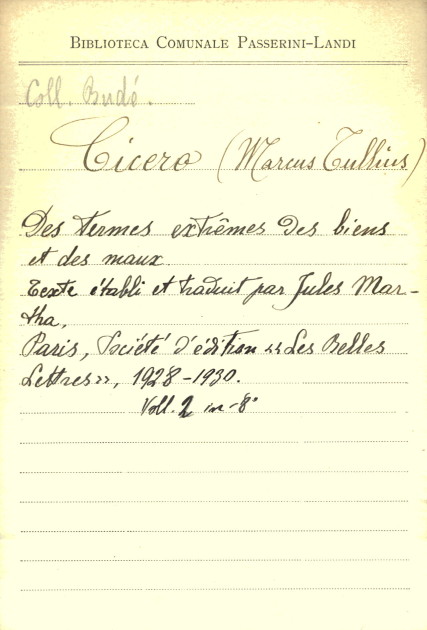 BIBLIOTECA COMUNALE PASSERINI-LANDI
Coll. Budé.
Cicero (Marcus Tullius)
Des termes extrêmes des biens
et des maux.
Texte établi et traduit par Jules Mar-
tha.
Paris, Société d'édition «Les Belles
Lettres», 1928-1930.
Voll. 2 in-8°